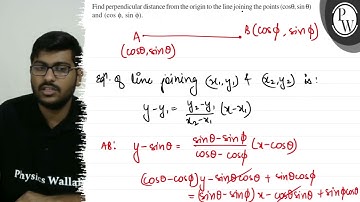 Find perpendicular distance from the origin to the line joining the points (cosθ, sin θ)
and (cos ϕ, sin ϕ).
A B (cosϕ, sinϕ)
(cosθ, sinθ)
Eqⁿ. of line joining (x₁,y₁) & (x₂,y₂) is:
y-y₁ = y₂-y₁/x₂-x₁ (x-x₁)
AB: y-sinθ = sinθ-sinϕ/cosθ-cosϕ (x-cosθ)
(cosθ-cosϕ)y - sinθcosθ + sinθcosϕ
= (sinθ-sinϕ)x - cosθsinθ + sinϕcosθ
PW
Physics Wallah